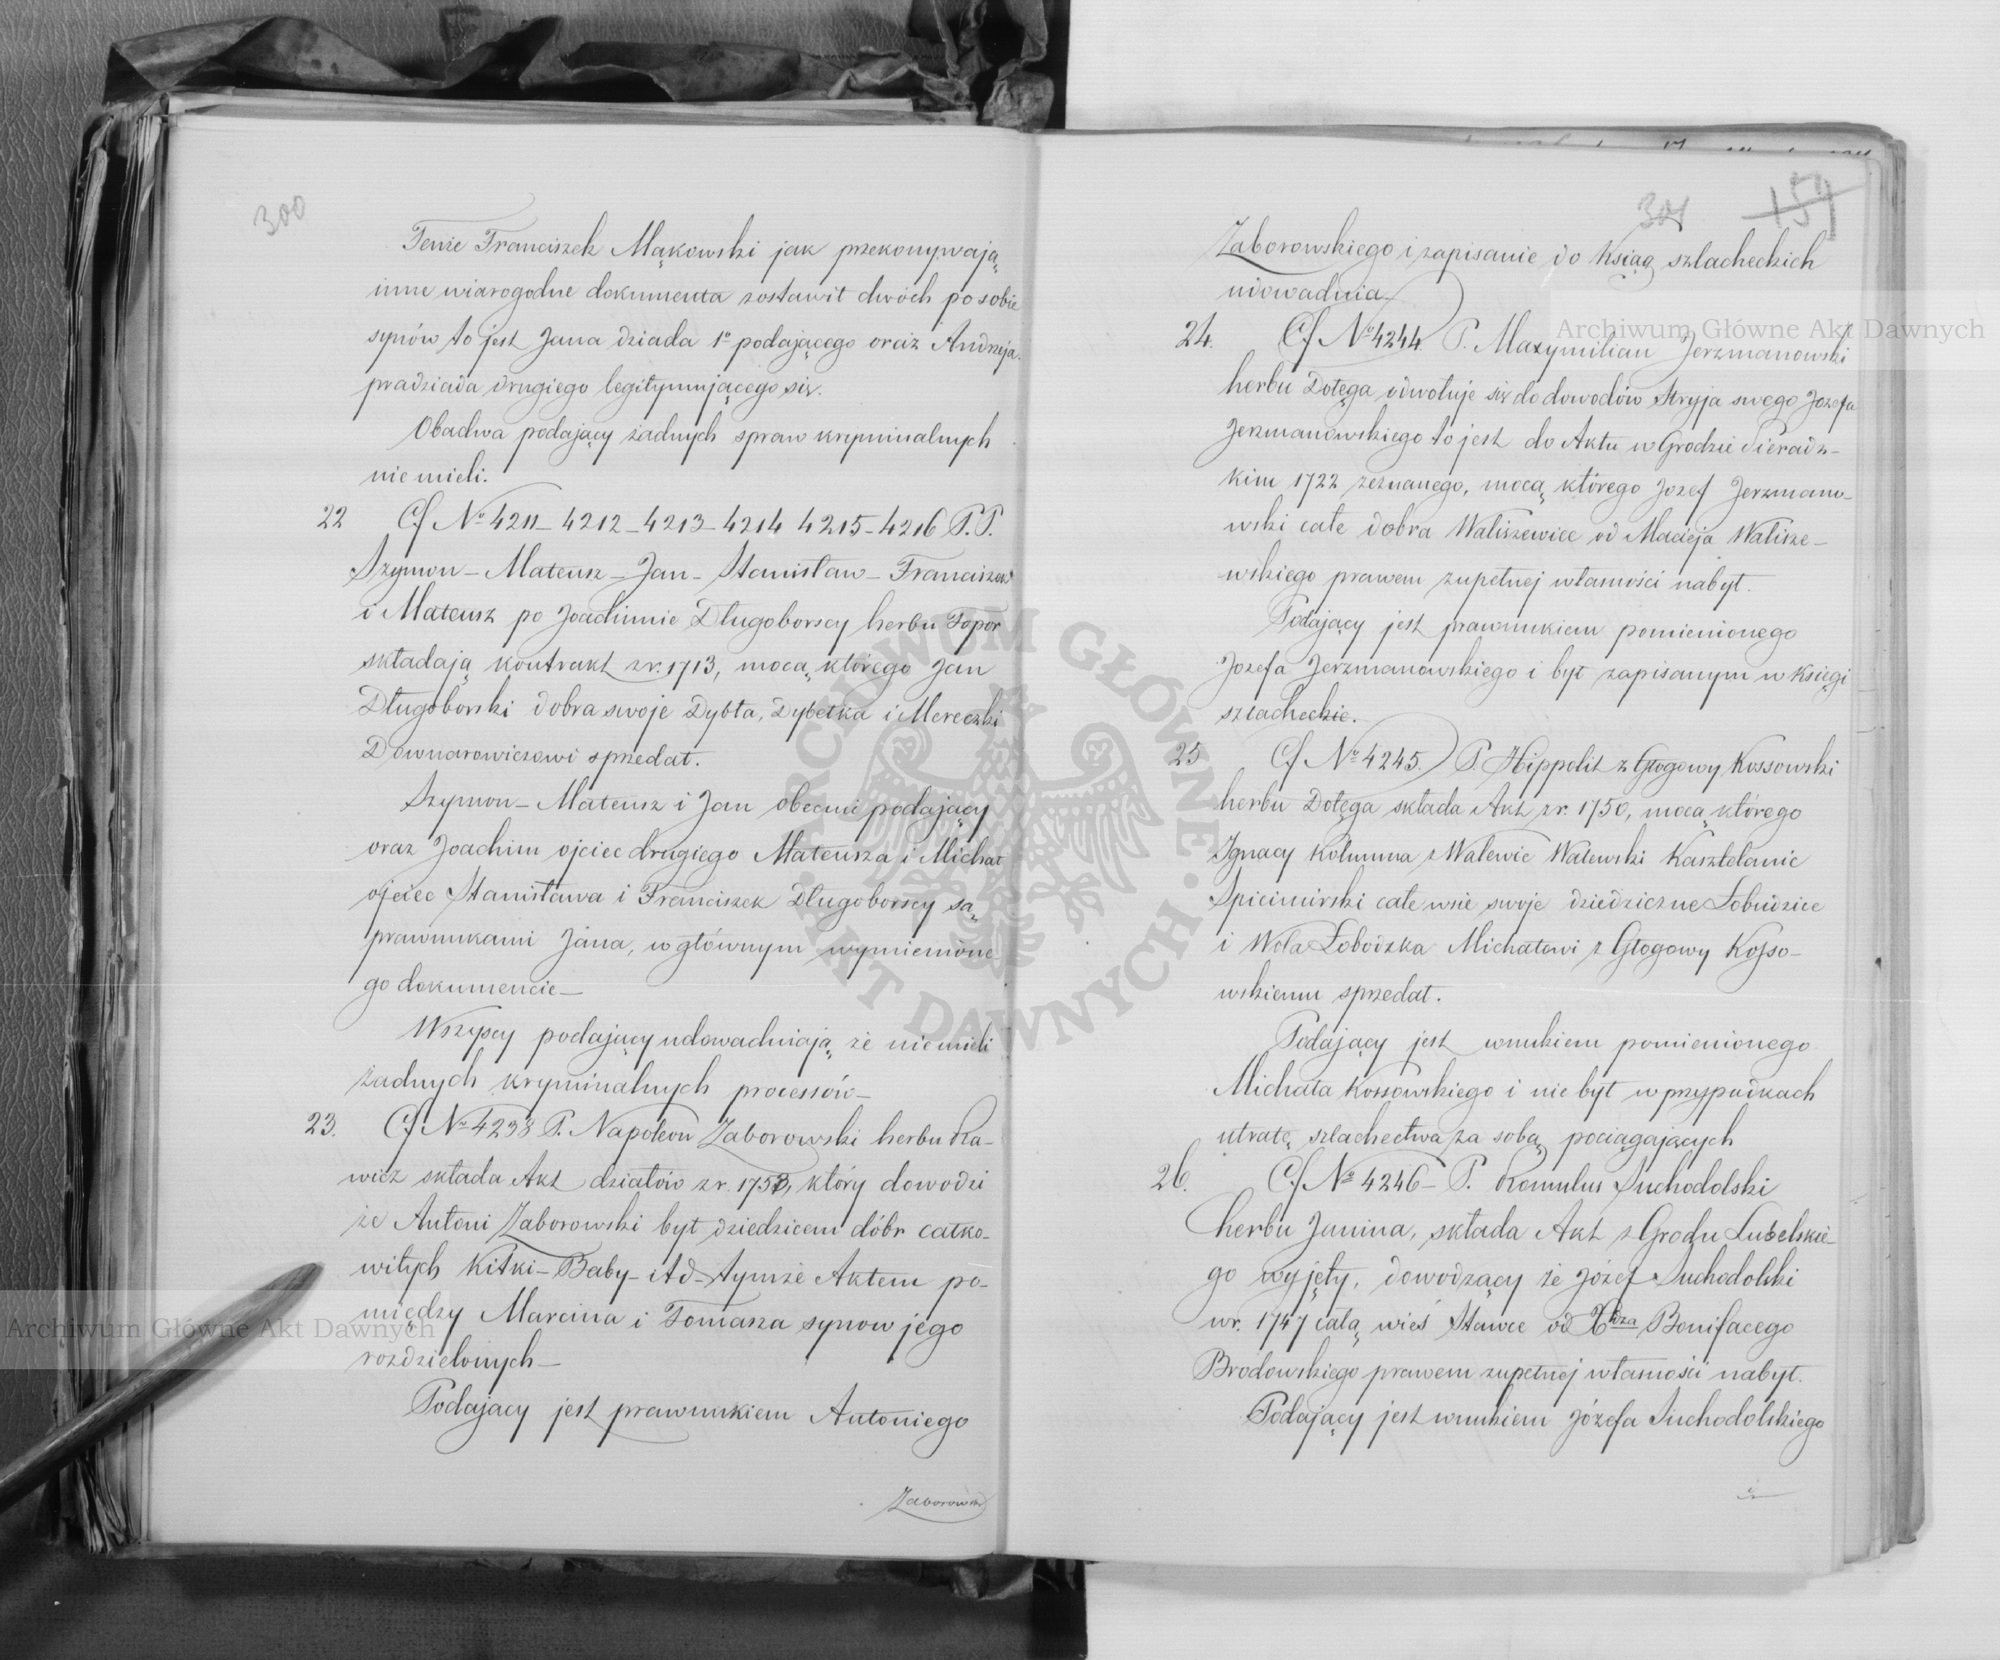 300
Tenże Franciszek Mąkowski jak przekonywają
inne wiarogodne dokumenta zostawił dwóch po sobie
synów to jest Jana dziada 1o podającego oraz Andrzeja
pradziada drugiego legitymującego się.
Obadwa podający żadnych spraw kryminalnych
nie mieli.
22 Cf No 4211 – 4212 – 4213 – 4214 4215 – 4216 P.P.
Szymon – Mateusz – Jan – Stanisław – Franciszek
i Mateusz po Joachimie Długoborscy herbu Topor
składają kontrakt z r. 1713, mocą którego Jan
Długoborski dobra swoje Dybła, Dybełka i Mereczki
Downarowiczowi sprzedał.
Szymon – Mateusz i Jan obecnie podający
oraz Joachim ojciec drugiego Mateusza i Michał
ojciec Stanisława i Franciszek Długoborscy są
prawnukami Jana, w głównym wymienione-
go dokumencie –
Wszyscy podający udowadniają że nie mieli
żadnych kryminalnych processów –
23. Cf No 4238 P. Napoleon Zaborowski herbu Ra-
wicz składa Akt działów z r. 1753, który dowodzi
że Antoni Zaborowski był dziedzicem dóbr całko-
witych Kitki – Baby – itd – tymże Aktem po-
między Marcina i Tomasza synow jego
rozdzielonych –
Podajacy jest prawnukiem Antoniego
Zaborowski
301 151
Zaborowskiego i zapisanie do Ksiąg szlacheckich
udowadnia –
24. Cf No 4244. P. Maxymilian Jerzmanowski
herbu Dołęga odwołuje się do dowodów Stryja swego Jozefa
Jerzmanowskiego to jest do Aktu w Grodzie Sieradz-
kim 1722 zeznanego, mocą którego Jozef Jerzmano-
wski całe dobra Waliszewice od Macieja Walisze-
wskiego prawem zupełnej własności nabył.
Podający jest prawnukiem pomienionego
Jozefa Jerzmanowskiego i był zapisanym w Księgi
szlacheckie.
25 Cf No 4245. P. Hippolit z Głogowy Kossowski
herbu Dołęga składa Akt z r. 1750, mocą którego
Ignacy Kolumna z Walewic Walewski Kasztelanic
Spicimirski całe wsie swoje dziedziczne Łobudzice
i Wola Łobodzka Michałowi z Głogowy Kosso-
wskiemu sprzedał.
Podający jest wnukiem pomienionego
Michała Kossowskiego i nie był w przypadkach
utratę szlachectwa za sobą pociągających
26. Cf No 4246 – P. Romulus Suchodolski
herbu Janina, składa Akt z Grodu Lubelskie-
go wyjęty, dowodzący że Józef Suchodolski
w r. 1747 całą wieś Stawce od Xdza Bonifacego
Brodowskiego prawem zupełnej własności nabył.
Podający jest wnukiem Józefa Suchodolskiego
Archiwum Główne Akt Dawnych
Archiwum Główne Akt Dawnych
ARCHIWUM GŁÓWNE · AKT DAWNYCH ·